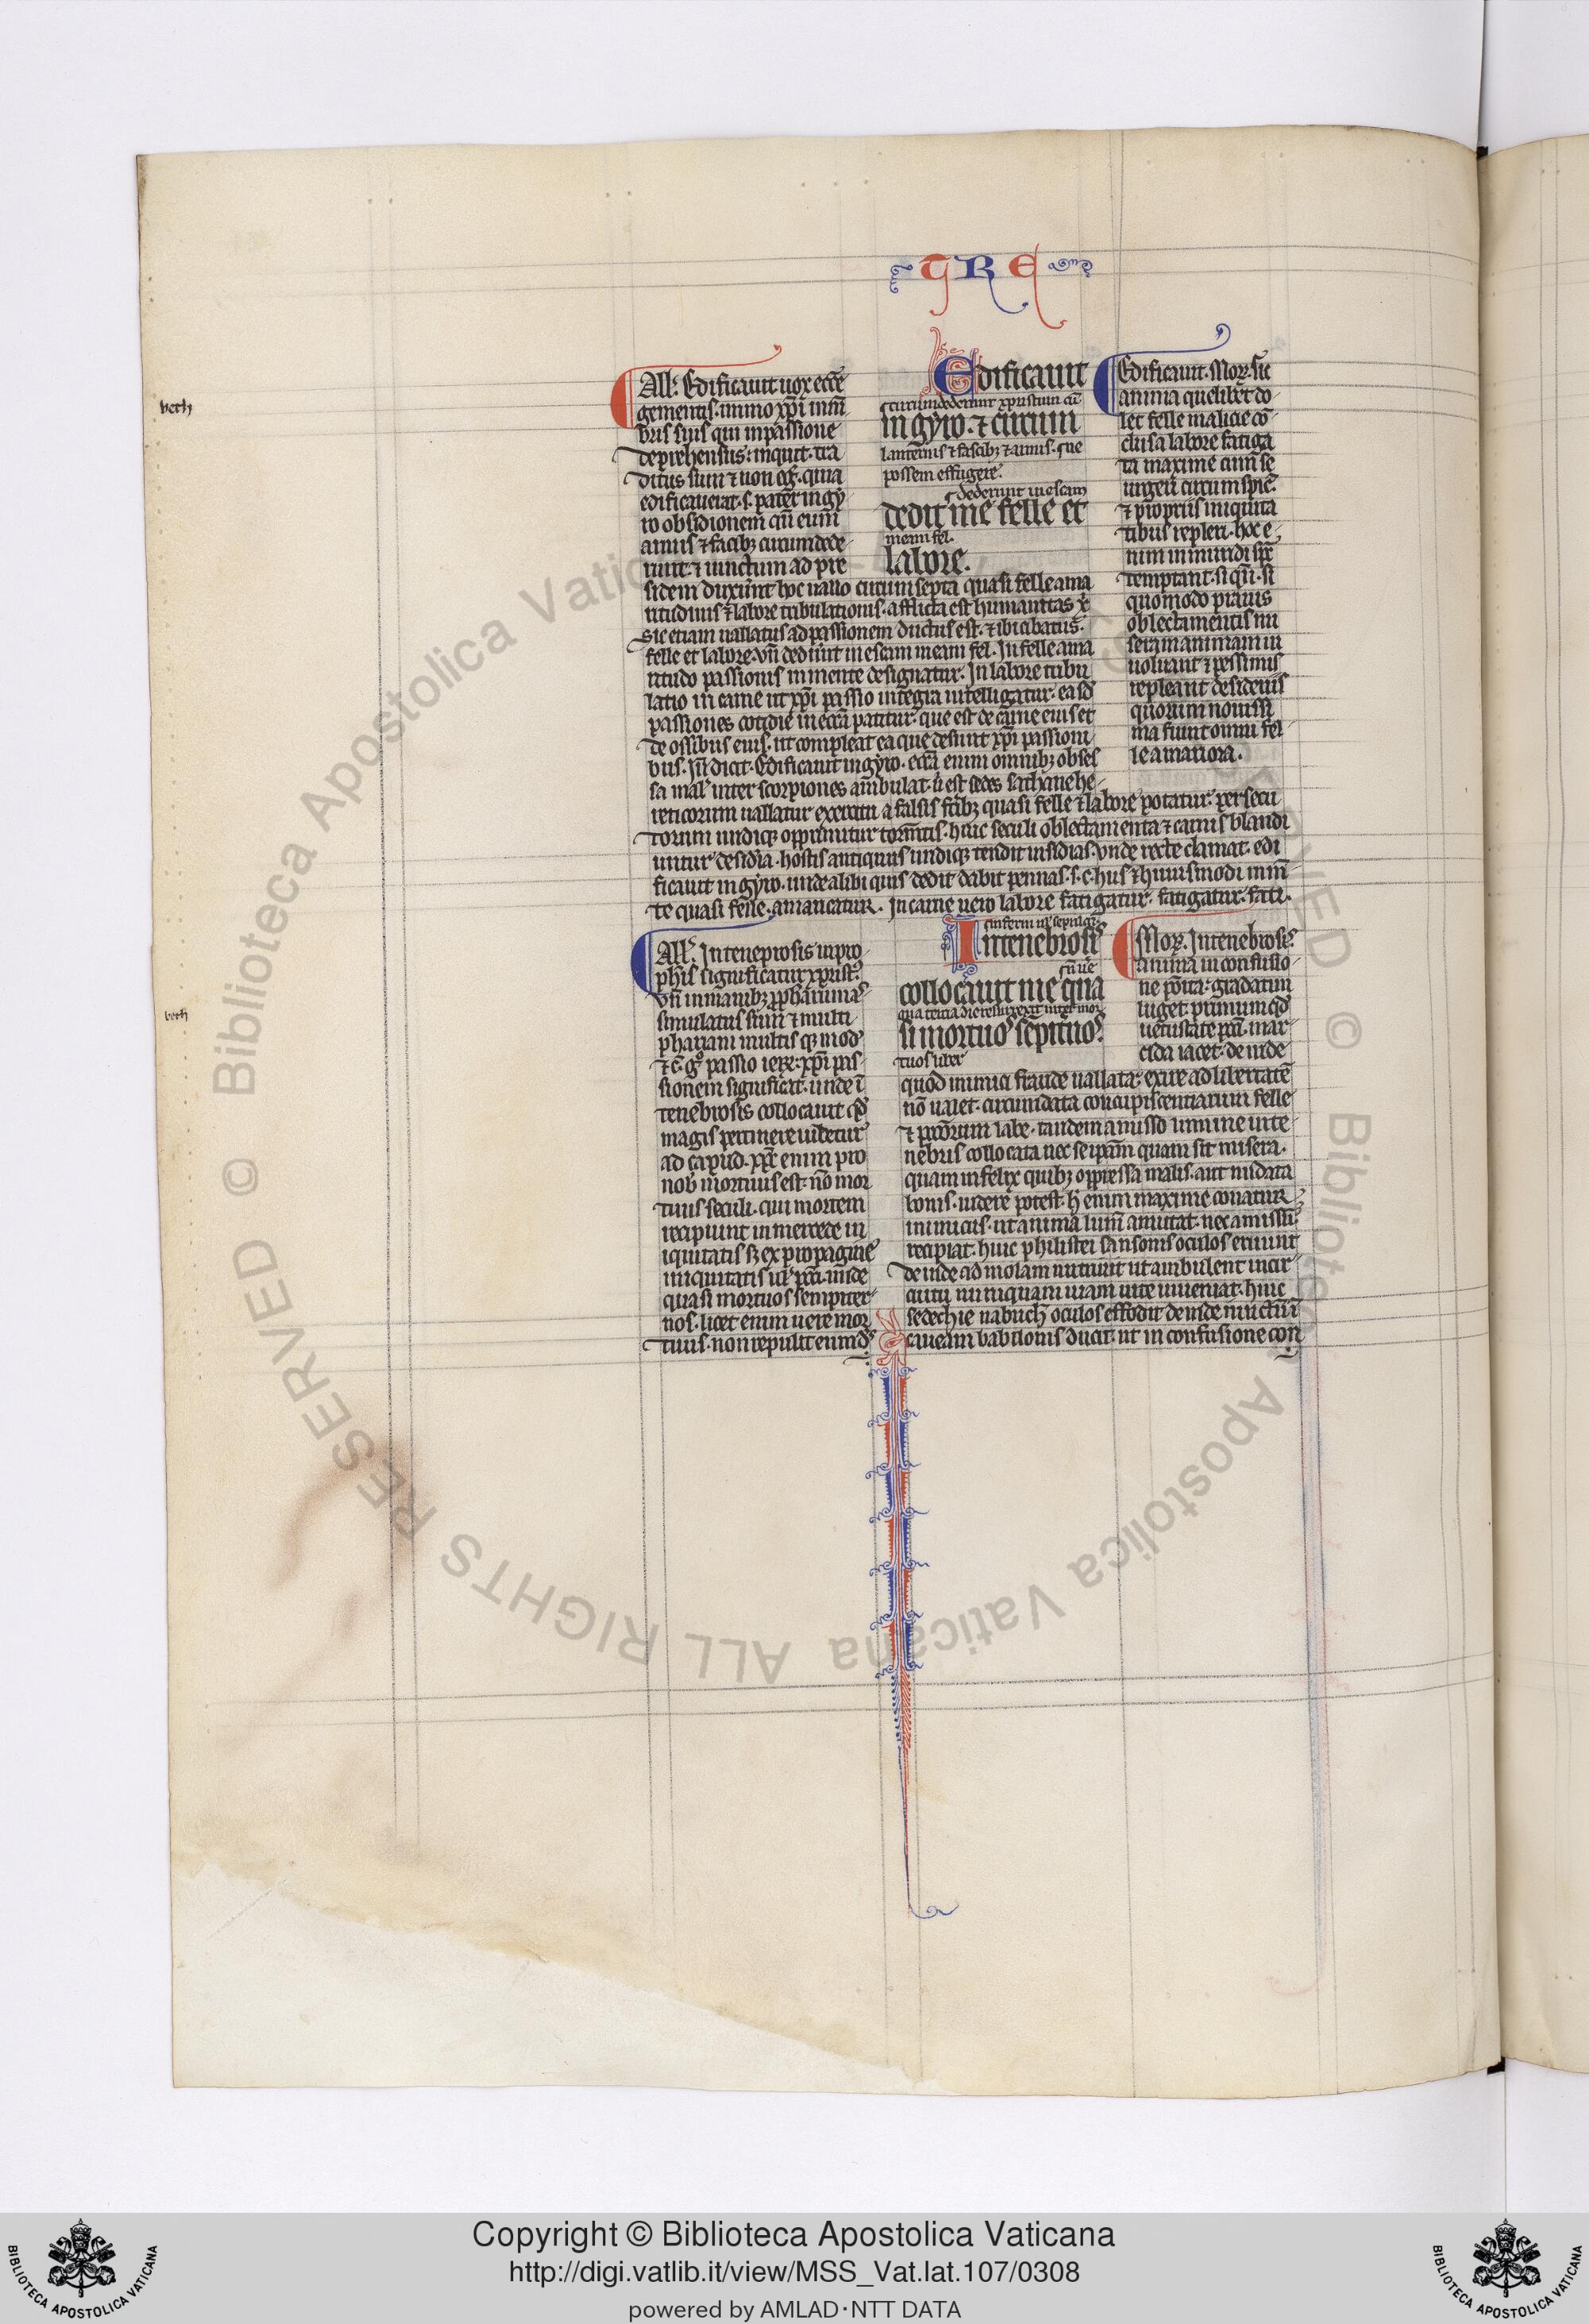 TRE
beth
All'. Edificauit uox eccē
gementis. immo xp̄i in mē
bris suis qui inpassione
deprehensus: inquit. tra
ditus sum ⁊ non eḡ. quia
edificauerat. s. pater in gy
ro obsidionem cū eum
armis ⁊ facibꝫ circumdede
runt. ⁊ uinctum ad pre
sidem duxerūt hoc uallo circum septa quasi felle ama
ritudinis ⁊ labore tribulationis. afflicta est humanitas x̄
Sic etiam uallatus ad passionem ductus est. ⁊ ibi cibatus
felle et labore. vn̄ dederūt in escam meam fel. In felle ama
ritudo passionis in mente designatur. In labore tribu
latio in carne ut xp̄i passio integra intelligatur. easd̄
passiones cotidie in ecc̄a patitur. que est de carne eius et
de ossibus eius. ut compleat ea que desunt xp̄i passioni
bus. Jn̄ dicit. Edificauit in gyro. ecc̄a enim omnibꝫ obses
sa mal' inter scorpiones ambulat. ū est sedes sathane he
reticorum uallatur exercitu a falsis fr̄ibꝫ quasi felle ⁊ labore potatur. persecu
torum undiqꝫ opprimitur torm̄tis. huic seculi oblectamenta ⁊ carnis blandi
untur desid'ia. hostis antiquus undiqꝫ tendit insidias. vnde recte clamat. edi
ficauit in gyro. unde alibi quis dedit dabit pennas. s. c. hus ⁊ huiusmodi in mē
te quasi felle. amaricatur. In carne uero labore fatigatur. fatigatur. fati.
Edificauit
circumdederunt xpistum cū
in gyro. ⁊ circum
lanternis ⁊ facibꝫ ⁊ armis. s ne
possem effugere.
dederunt in escam
dedit me felle et
meam fel.
labore.
Edificauit. Moꝝ. sic
anima quelibet do
let felle malicie cō
clusa labore fatiga
ta maxime cum se
urgeri circumspic̄
⁊ propriis iniquita
tibus repleri. hoc e
nim inmundi sp̄c
temptant. si qn̄. si
quomodo prauis
oblectamentis mi
seram animam in
uoluant ⁊ pessimis
repleant desideriis
quorum nouissi
ma fiunt omni fel
le amariora.
beth
All'. In tenebrosis in pro
ph'is significatur xpist'.
vn̄ in manibꝫ ꝓphaꝝ
simulatus sum ⁊ multi
phariam multis qꝫ mod'
⁊ c̄. g° passio iere. xp̄i pas
sionem significat. unde ī
tenebrosis collocauit qd̄
magis pertinere uidetur
ad capud. xp̄c enim pro
nob' mortuus est. nō mor
tuus seculi. qui mortem
recipiunt in mercede in
iquitatis sꝫ ex propagine
iniquitatis ul' pcc̄i. inde
quasi mortuos sempiter
nos. licet enim uere mor
tuus. non repulit eum d's
inferni ul' sepulcri
In tenebrosis
s n̄ ue
collocauit me qua
quia tercia die resurrexit inter mor
si mortuos sēpitnos.
tuos liber
Moꝝ. In tenebrosis.
anima in confusio
ne pōita: gradatim
luget. primum qd̄
uetustate pcc̄i mar
cida iacet. deinde
quod inimici fraude uallata: exire ad libertatē
nō ualet. circumdata concupiscentiarum felle
⁊ pcc̄orum labe. tandem amisso lumine in te
nebris collocata nec seip̄am quam sit misera.
quam infelix quibꝫ oppressa malis. aut nudata
bonis. uidere potest. h̄ enim maxime conatur
inimicus. ut anima lum̄ amittat. nec amissū
recipiat. huic philistei sansonis oculos eruunt
deinde ad molam mittunt ut ambulent in cir
cuitu numquam uiam uite inueniat. huic
sedechie nabuch' oculos effodit deinde uinctū ī
caueam babilonis ducit. ut in confusione con